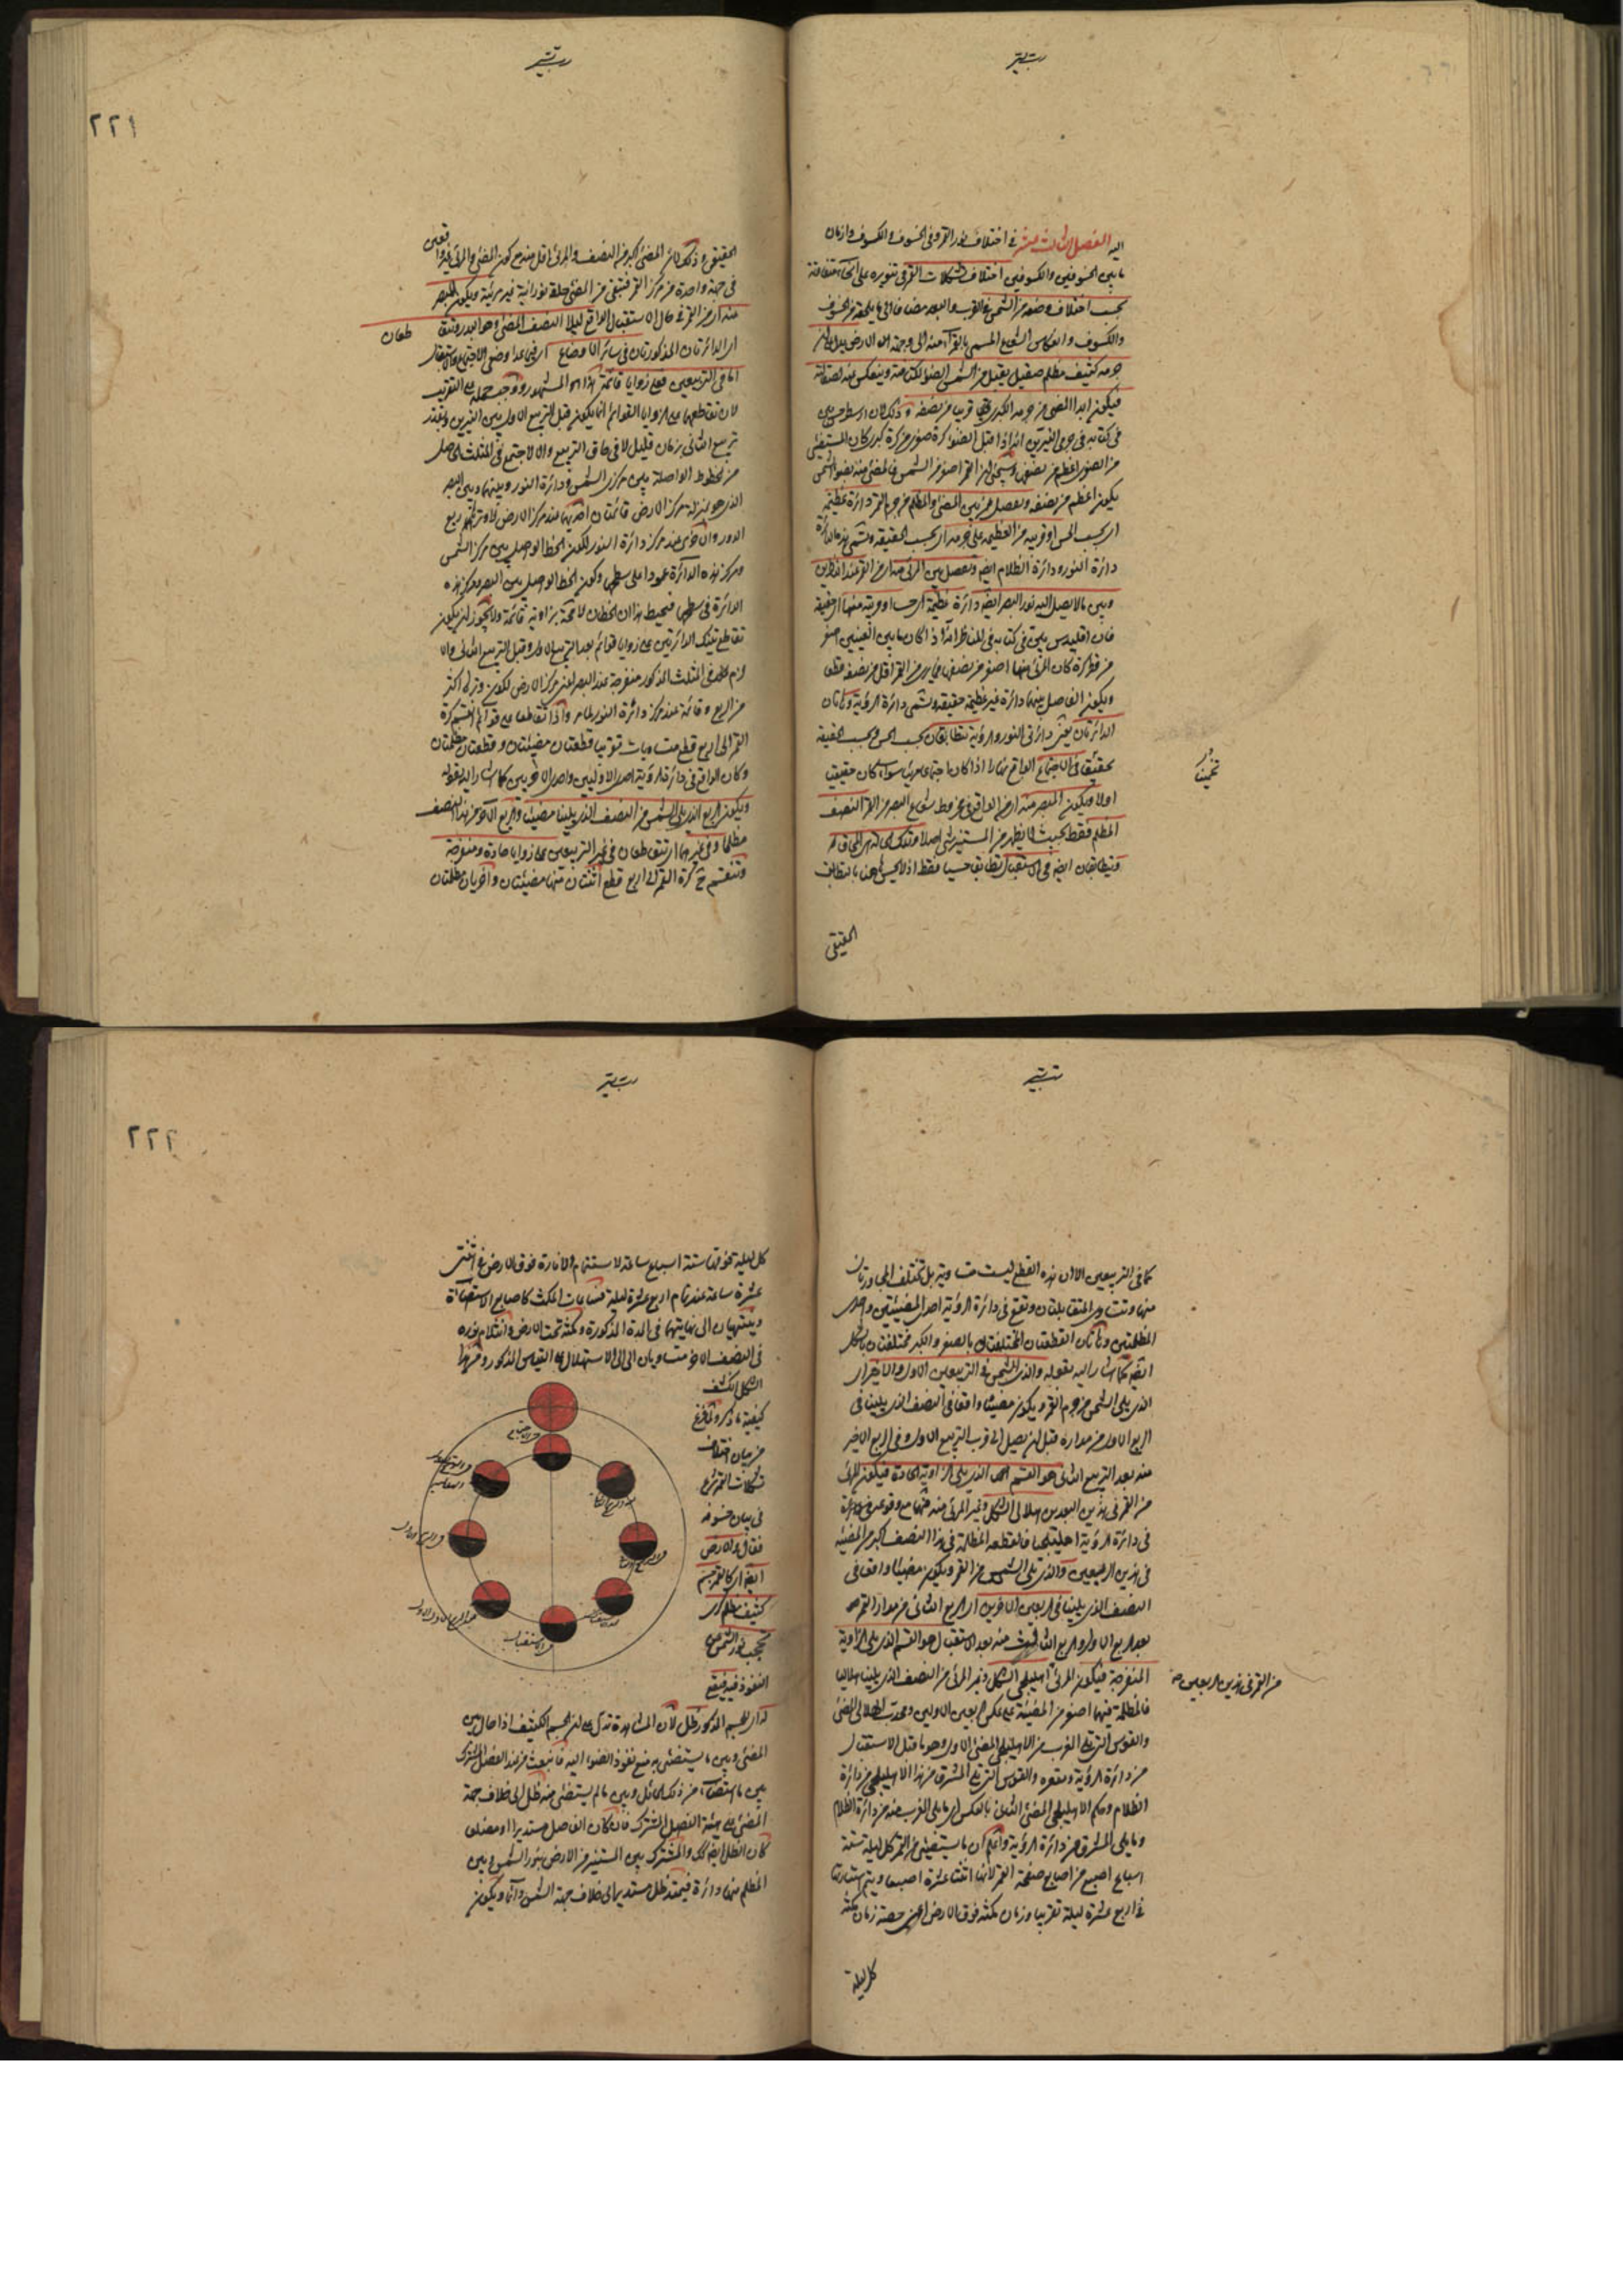 اليه الفصل الثالث عشر في اختلاف نور القمر وفي الخسوف والكسوف وازمان
ما بين الخسوفين والكسوفين اختلاف تشكلات القمر في تنوره على انحاء متفاوتة
بحسب اختلاف وضعه من الشمس في القرب والبعد مضافا الى ما يلحقه من الخسوف
والكسوف وانعكاس الشعاع المسمى بالقمراء منه الى وجهة الارض يدل ان
جرمه كثيف مظلم صقيل يقبل من الشمس الضوء لكثافته وينعكس عنه لصقالته
فيكون ابدا المضيء من جرمه الكدر قريبا من نصفه وذلك لان ارسطرخس بين
في كتابه في جرمي النيرين انه اذا قبل الضوء كرة صغرى من كرة كبرى كان المستضيء
من الصغرى اعظم من نصفها جرم القمر اصغر من الشمس فالمضيء منه بضوء الشمس
يكون اعظم من نصفه ويفصل بين المضيء والمظلم من جرم القمر دائرة عظيمة
اي بحسب الحس او قريبة من العظيمة على جرمه اي بحسب الحقيقة وتسمى هذه الدائرة
دائرة النور ودائرة الظلام ايضا ويفصل بين المرئي منه اي من القمر عند الناظرين
وبين ما لا يصل اليه نور البصر ايضا دائرة عظيمة اي حسا او قريبة منها اي حقيقة
فان اقليدس بين في كتابه في المناظر انه اذا كان ما بين العينين اصغر
من قطر كرة كان المرئي منها اصغر من نصفها فيرى من القمر اقل من نصفه
ويكون الفاصل بينهما دائرة غير عظيمة حقيقة وتسمى دائرة الرؤية وهاتان
الدائرتان يعني دائرتي النور والرؤية تتطابقان بحسب الحس لا بحسب الحقيقة
في الاجتماع الواقع نهارا اذا كان اجتماعا مرئيا سواء كان حقيقيا
او لا ويكون المبصر منه اي الواقع في مخروط شعاع البصر من القمر النصف
المظلم فقط بحيث لا يظهر من المستنير شيء اصلا وتلك الحالة هي المحاق
ويتطابقان ايضا في الاستقبال تطابقا حسيا فقط اذ لا يحسن ههنا بالتطابق
الحقيقي
تخمينا
٢٢١
الحقيقي وذلك لان المضيء اكبر من النصف والمرئي اقل منه مع كون المضيء والمرئي
في جهة واحدة من مركز القمر فتبقى من المضيء حلقة نورانية غير مرئية ويكون المبصر
منه اي من القمر في حال الاستقبال الواقع ليلا النصف المضيء وهو البدر وتتقا
طعان
اي الدائرتان المذكورتان في سائر الاوضاع اي فيما عدا وضعي الاجتماع والاستقبال
اما في التربيعين فعلى زوايا قائمة هذا هو المشهور ووجب حمله على التقريب
لان تقاطعهما على الزوايا القوائم انما يكون قبل التربيع الاول بين النيرين وبعد
تربيع الثاني بزمان قليل لا في حاق التربيع والا لاجتمع في المثلث الحاصل
من الخطوط الواصلة بين مركزي الشمس ودائرة النور وبينهما وبين البصر
الذي هو بمنزلة مركز الارض قائمتان احديهما عند مركز الارض لان وترها ربع
الدور والاخرى عند مركز دائرة النور لكون الخط الواصل بين مركز الشمس
ومركز هذه الدائرة عمودا على سطحها وكون الخط الواصل بين البصر ومركز هذه
الدائرة في سطحها فيحيط هذان الخطان لا محالة بزاوية قائمة ولا يجوز ان يكون
تقاطع تينك الدائرتين على زوايا قوائم بعد التربيع الاول وقبل التربيع الثاني والا
لزم في المثلث المذكور منفرجة عند البصر اعني مركز الارض لكون وترها اكثر
من الربع وقائمة عند مركز دائرة النور لما مر واذا تقاطعا على قوائم انقسم كرة
القمر الى اربع قطع متساويات تقريبا قطعتان مضيئتان وقطعتان مظلمتان
وكان الواقع في دائرة الرؤية احدى الاوليين واحدى الاخريين كما اشار اليه بقوله
ويكون الربع الذي يلي الشمس من النصف الذي يلينا مضيئا والربع الاخر من هذا النصف
مظلما وفي غيرهما اي تتقاطعان في غير التربيعين على زوايا حادة ومنفرجة
وتنقسم ح كرة القمر الى اربع قطع اثنتان منها مضيئتان واخريان مظلمتان
كما في التربيعين الا ان هذه القطع ليست متساوية بل تختلف المجاورتان
منها وتتساوى المتقابلتان وتقع في دائرة الرؤية احدى المضيئتين واحدى
المظلمتين وهاتان القطعتان المختلفتان بالصغر والكبر مختلفتان بالشكل
ايضا كما اشار اليه بقوله والذي يلي الشمس في التربيعين الاول والاخير اي
الذي يلي الشمس من جرم القمر ويكون مضيئا واقعا في النصف الذي يلينا في
الربع الاول من مداره قبل ان يصل الى قرب التربيع الاول وفي الربع الاخير
منه بعد التربيع الثاني هو القسم الذي يلي الزاوية الحادة فيكون المرئي
من القمر في هذين البعدين هلالي الشكل وغير المرئي منه فيهما مع وقوعه
في دائرة الرؤية اهليلجيا فالقطعة المظلمة في هذا النصف اكبر من المضيئة
في هذين الربعين والذي يلي الشمس من القمر ويكون مضيئا واقعا في
النصف الذي يلينا في الربعين الاخرين اي الربع الثاني من مدار القمر
بعد الربع الاول والربع الثالث منه بعد الاستقبال هو القسم الذي يلي الزاوية
المنفرجة فيكون المرئي اهليلجي الشكل وغير المرئي من النصف الذي يلينا هلاليا
من القمر في هذين الربعين صح
فالمظلمة فيهما اصغر من المضيئة على عكس الربعين الاولين ومحدب الهلالي المضيء
والقوس التي تلي المغرب من الاهليلجي المضيء الاول وهو ما قبل الاستقبال
من دائرة الرؤية ومقعره والقوس التي تلي المشرق من هذا الاهليلجي من دائرة
الظلام وحكم الاهليلجي المضيء الثاني بالعكس اي ما يلي المغرب منه من دائرة الظلام
وما يلي المشرق من دائرة الرؤية واعلم ان ما يستضيء من القمر كل ليلة ستة
اسباع اصبع من اصابع صفحة القمر لانها اثنتا عشرة اصبعا ويتم استنارتها
في اربع عشرة ليلة تقريبا وزمان مكثه فوق الارض اعني حصة زمان مكثه
كل ليلة
٢٢٢
كل ليلة نحو ستة اسباع ساعة لاستتمام الانارة فوق الارض في اثنتي
عشرة ساعة عند تمام اربع عشرة ليلة فساعات المكث كاصابع الاستضاءة
وينتهيان الى نهايتهما في المدة المذكورة ومكثه تحت الارض وانثلام نوره
في النصف الاخر متساويان الى الاستهلال على القياس المذكور وهذا
الشكل لكشف
كيفية ما ذكر ولما فرغ
من بيان اختلاف
تشكلات القمر شرع
في بيان خسوفه
فقال والارض
ايضا كالقمر جسم
كثيف مظلم كري
تحجب نور الشمس عن
النفوذ فيه فيقع
له اي للجسم المذكور ظل لان المشاهدة تدل على ان الجسم الكثيف اذا حال بين
المضيء وبين ما يستضيء به منع نفوذ الضوء اليه فانبعث من عند الفصل المشترك
بين ما استضاء من ذلك الحائل وبين ما لم يستضيء منه ظل الى خلاف جهة
المضيء على هيئة الفصل المشترك فان كان الفاصل مستديرا او مضلعا
كان الظل ايضا كذلك والمشترك بين المستنير من الارض بنور الشمس وبين
المظلم منها دائرة فيمتد ظل مستدير الى خلاف جهة الشمس وانما ويكون